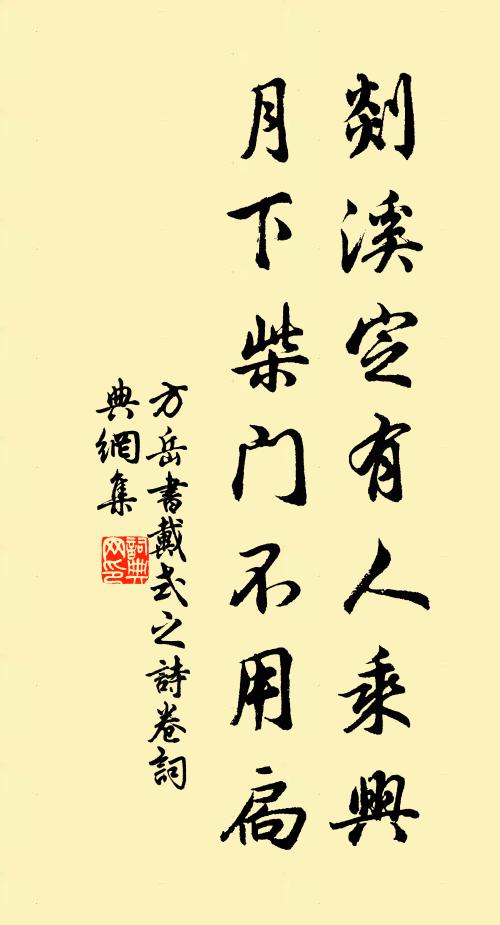 剡溪定有人乘興
月下柴門不用扃
方岳書戴式之詩卷詞
典網集
詞典
网印